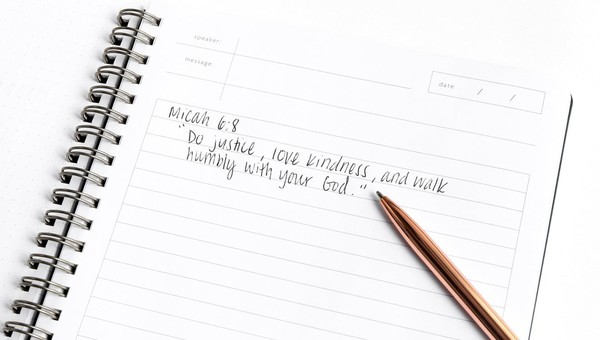 speaker:
message:
date / /
Micah 6:8
"Do justice, love kindness, and walk
humbly with your God."